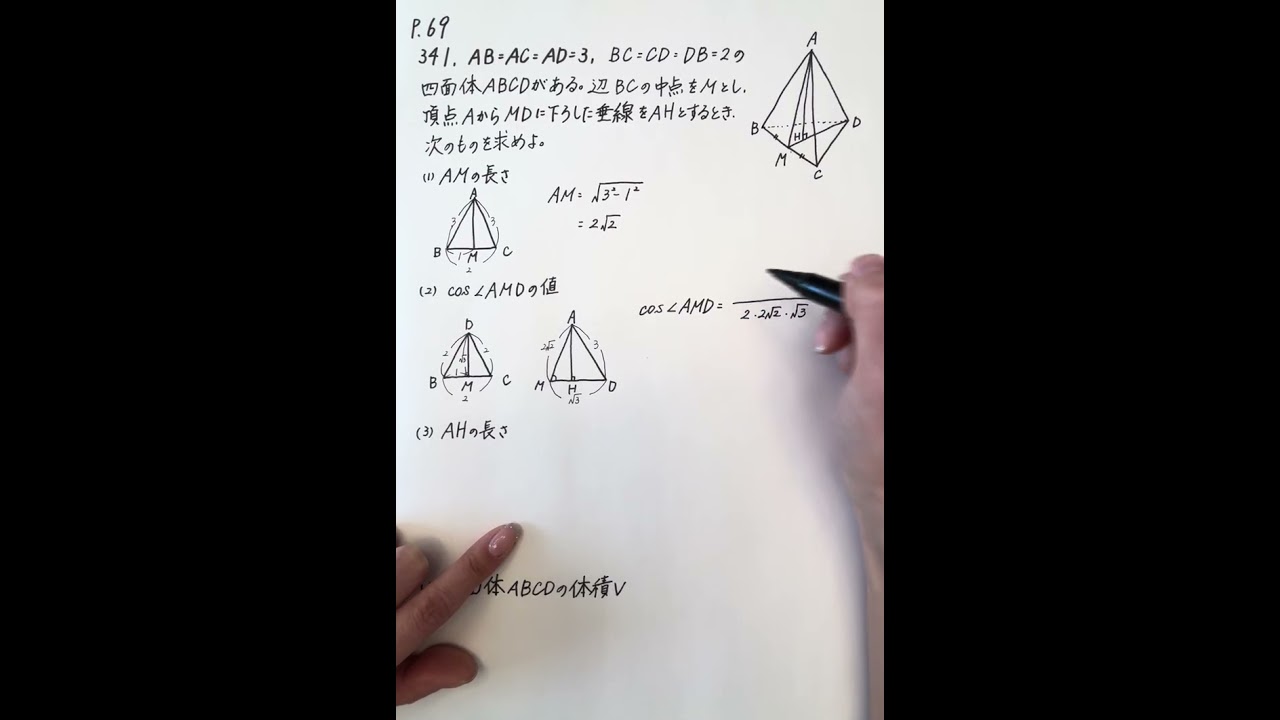 P.69
341. AB=AC=AD=3, BC=CD=DB=2の
四面体ABCDがある。辺BCの中点をMとし、
頂点AからMDに下ろした垂線をAHとするとき、
次のものを求めよ。
A
B
D
H
M
C
(1) AMの長さ
A
3
3
B
1
M
C
2
AM=√3²-1²
=2√2
(2) cos∠AMDの値
D
2
√3
2
B
1
M
C
2
A
2√2
3
M
H
D
√3
cos∠AMD=
2・2√2・√3
(3) AHの長さ
体ABCDの体積V